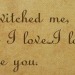 witched me,
I love, I l
e you.